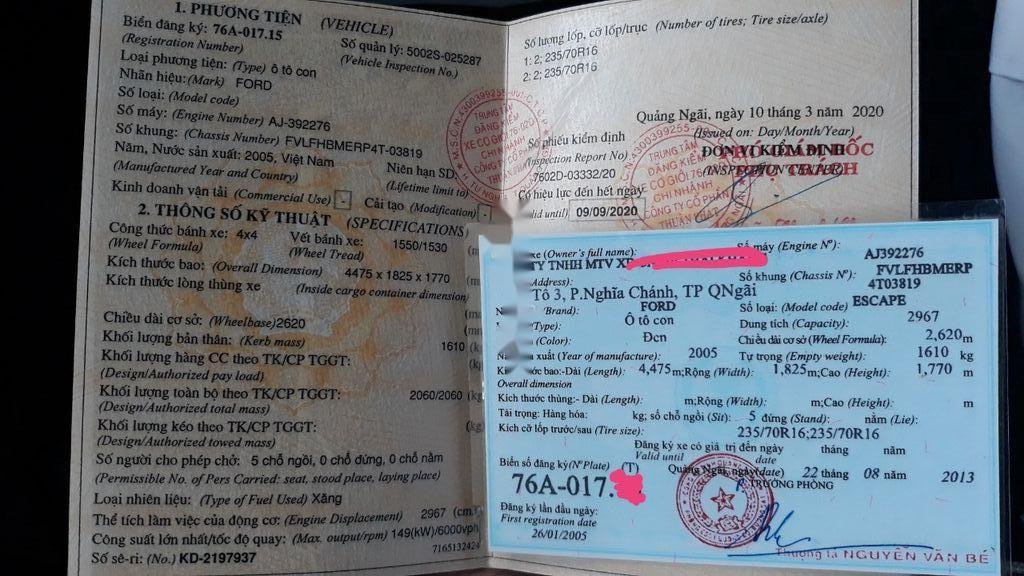 1. PHƯƠNG TIỆN (VEHICLE)
Biển đăng ký: 76A-017.15
(Registration Number)
Số quản lý: 5002S-025287
(Vehicle Inspection No.)
Loại phương tiện: (Type) ô tô con
Nhãn hiệu: (Mark) FORD
Số loại: (Model code)
Số máy: (Engine Number) AJ-392276
Số khung: (Chassis Number) FVLFHBMERP4T-03819
Năm, Nước sản xuất: 2005, Việt Nam
(Manufactured Year and Country)
Niên hạn SD:
(Lifetime limit to)
Kinh doanh vận tải (Commercial Use) - Cải tạo (Modification) -
2. THÔNG SỐ KỸ THUẬT (SPECIFICATIONS)
Công thức bánh xe: 4x4
(Wheel Formula)
Vết bánh xe: 1550/1530
(Wheel Tread)
Kích thước bao: (Overall Dimension) 4475 x 1825 x 1770
Kích thước lòng thùng xe
(Inside cargo container dimension)
Chiều dài cơ sở: (Wheelbase) 2620
Khối lượng bản thân: (Kerb mass) 1610
Khối lượng hàng CC theo TK/CP TGGT:
(Design/Authorized pay load)
Khối lượng toàn bộ theo TK/CP TGGT: 2060/2060
(Design/Authorized total mass)
Khối lượng kéo theo TK/CP TGGT:
(Design/Authorized towed mass)
Số người cho phép chở: 5 chỗ ngồi, 0 chỗ đứng, 0 chỗ nằm
(Permissible No. of Pers Carried: seat, stood place, laying place)
Loại nhiên liệu: (Type of Fuel Used) Xăng
Thể tích làm việc của động cơ: (Engine Displacement) 2967 (cm
Công suất lớn nhất/tốc độ quay: (Max. output/rpm) 149(kW)/6000vph
7165132424
Số sê-ri: (No.) KD-2197937
Số lượng lốp, cỡ lốp/trục (Number of tires; Tire size/axle)
1: 2; 235/70R16
2: 2; 235/70R16
Quảng Ngãi, ngày 10 tháng 3 năm 2020
(Issued on: Day/Month/Year)
Số phiếu kiểm định
(Inspection Report No)
7602D-03332/20
ĐƠN VỊ KIỂM ĐỊNH
(INSPECTION CENTER)
PHỤ TRÁCH
Có hiệu lực đến hết ngày
valid until) 09/09/2020
TRUNG TÂM
ĐĂNG KIỂM
XE CƠ GIỚI 76-02D
CHI NHÁNH
CÔNG TY CỔ PHẦN
xe (Owner's full name):
TY TNHH MTV
Số máy (Engine Nº): AJ392276
Address):
Số khung (Chassis Nº): FVLFHBMERP
4T03819
Tổ 3, P.Nghĩa Chánh, TP QNgãi
Brand): FORD
Số loại: (Model code) ESCAPE
Type): Ô tô con
Dung tích (Capacity): 2967
(Color): Đen
Chiều dài cơ sở (Wheel Formula): 2,620m
xuất (Year of manufacture): 2005
Tự trọng (Empty weight): 1610 kg
bao:-Dài (Length): 4,475m;Rộng (Width): 1,825m;Cao (Height): 1,770 m
Overall dimension
Kích thước thùng:- Dài (Length): m;Rộng (Width): m;Cao (Height): m
Tải trọng: Hàng hóa: kg; số chỗ ngồi (Sit): 5 đứng (Stand): nằm (Lie):
Kích cỡ lốp trước/sau (Tire size): 235/70R16;235/70R16
Đăng ký xe có giá trị đến ngày tháng năm
Valid until date
Biển số đăng ký(Nº Plate) (T)
Quảng Ngãi, ngày(date) 22 tháng 08 năm 2013
76A-017.
TRƯỞNG PHÒNG
Đăng ký lần đầu ngày:
First registration date
26/01/2005
Thượng tá NGUYỄN VĂN BÉ